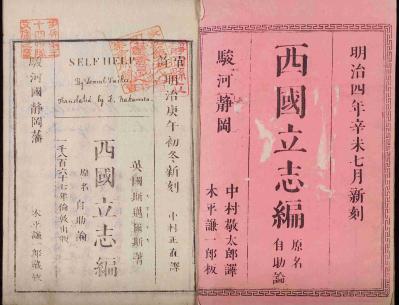 明治四年辛未七月新刻
西國立志編
原名
自助論
駿河靜岡
中村敬太郎譯
木平謙一郎板
SELF HELP
By Samuel Smiles
Translated by K. Nakamura
明治庚午初冬新刻
中村正直譯
英國斯邁爾斯著
西國立志編
原名
自助論
一千八百六十七年倫敦出版
駿河國靜岡藩
木平謙一郎藏板